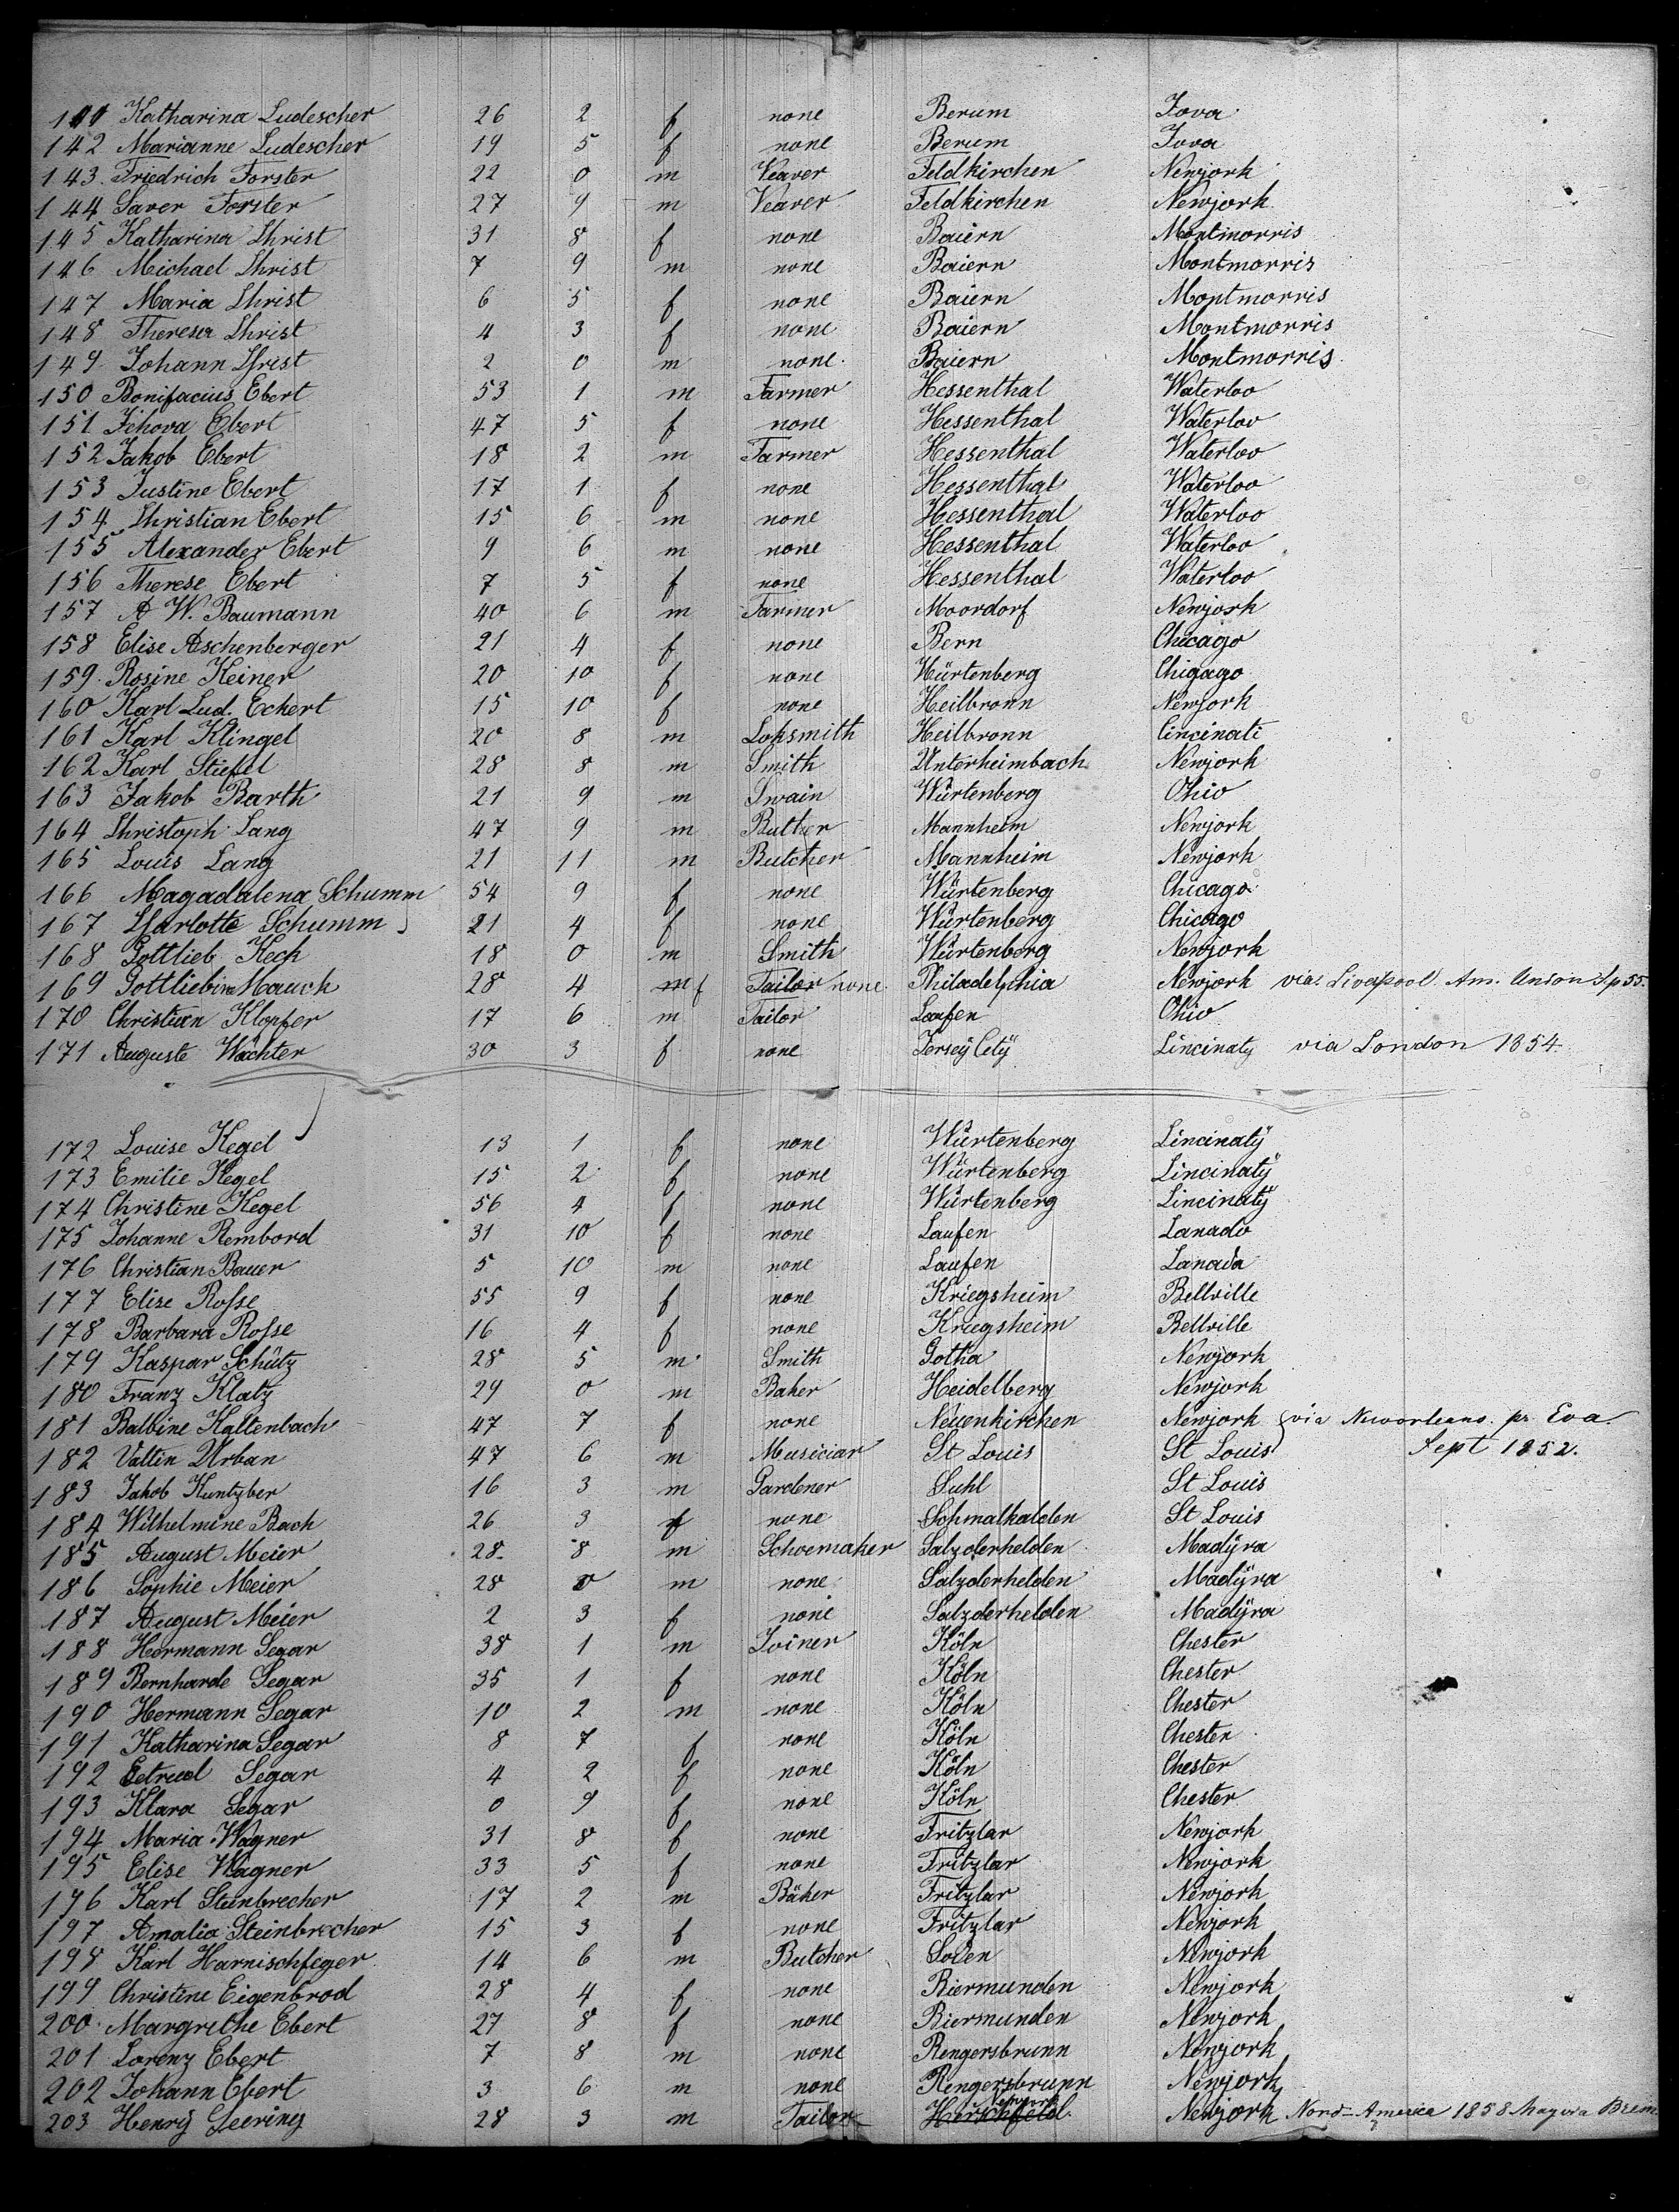 141 Katharina Ludescher 26 2 f none Berum Jova
142 Marianne Ludescher 19 5 f none Berum Jova
143. Friedrich Forster 22 0 m Veaver Feldkirchen Newjork
144 Saver Forster 27 9 m Veaver Feldkirchen Newjork
145 Katharina Christ 31 8 f none Baiern Montmorris
146 Michael Christ 7 9 m none Baiern Montmorris
147 Maria Christ 6 5 f none Baiern Montmorris
148 Theresa Christ 4 3 f none Baiern Montmorris
149. Johann Christ 2 0 m none. Baiern Montmorris.
150 Bonifacius Ebert 53 1 m Farmer Hessenthal Waterloo
151 Jehova Ebert 47 5 f none Hessenthal Waterloo
152 Jakob Ebert 18 2 m Farmer Hessenthal Waterloo
153 Justine Ebert 17 1 f none Hessenthal Waterloo
154 Christian Ebert 15 6 m none Hessenthal Waterloo
155 Alexander Ebert 9 6 m none Hessenthal Waterloo
156 Therese Ebert 7 5 f none Hessenthal Waterloo
157 A W. Baumann 40 6 m Farmer Moordorf Newjork
158 Elise Aschenberger 21 4 f none Bern Chicago
159. Rosine Keiner 20 10 f none Würtenberg Chigago
160 Karl Lud. Eckert 15 10 f none Heilbronn Newjork
161 Karl Klingel 20 8 m Loksmith Heilbronn Cincinati
162 Karl Stiefel 28 8 m Smith Unterheimbach Newjork
163 Jakob Barth 21 9 m Swain Würtenberg Ohio
164 Christoph Lang 47 9 m Buther Mannheim Newjork
165 Louis Lang 21 11 m Butcher Mannheim Newjork
166 Magadalena Schumm 54 9 f none Würtenberg Chicago
167 Charlotte Schumm 21 4 f none Würtenberg Chicago
168 Gottlieb Keck 18 0 m Smith Würtenberg Newjork
169 Gottliebine Mauch 28 4 m f Tailor none Philadelphia Newjork via Liverpool Am. Union Sp 55.
170 Christian Klopfer 17 6 m Tailor Laufen Ohio
171 Auguste Wächter 30 3 f none Jersey City Cincinaty via London 1854.
172 Louise Kegel 13 1 f none Würtenberg Cincinatÿ
173 Emilie Kegel 15 2 f none Würtenberg Cincinatÿ
174 Christine Kegel 56 4 f none Würtenberg Cincinatÿ
175 Johanne Rembord 31 10 f none Laufen Canado
176 Christian Bauer 5 10 m none Laufen Canada
177 Elise Rosse 55 9 f none Kriegsheim Bellville
178 Barbara Rosse 16 4 f none Kriegsheim Bellville
179 Kaspar Schütz 28 5 m Smith Gotha Newjork
180 Franz Klatz 29 0 m Baker Heidelberg Newjork
181 Balbine Kaltenbach 47 7 f none Neuenkirchen Newjork via Neworleans. pr Eva.
182 Valtin Urban 47 6 m Musiciar St Louis St Louis Sept 1852.
183 Jakob Kuntzber 16 3 m Gardener Suhl St Louis
184 Wilhelmine Bach 26 3 f none Schmalkalden St Louis
185 August Meier 28 8 m Schoemaker Salzderhelden Madÿra
186 Sophie Meier 28 0 m none Salzderhelden Madÿra
187 August Meier 2 3 f none Salzderhelden Madÿra
188 Hermann Segar 38 1 m Joiner Köln Chester
189 Bernharde Segar 35 1 f none Köln Chester
190 Hermann Segar 10 2 m none Köln Chester
191 Katharina Segar 8 7 f none Köln Chester
192 Segar 4 2 f none Köln Chester
193 Klara Segar 0 9 f none Köln Chester
194 Maria Wagner 31 8 f none Fritzlar Newjork
195 Elise Wagner 33 5 f none Fritzlar Newjork
196 Karl Steinbrecher 17 2 m Bäker Fritzlar Newjork
197 Amalia Steinbrecher 15 3 f none Fritzlar Newjork
198 Karl Harnischfeger 14 6 m Butcher Soden Newjork
199 Christine Eigenbrod 28 4 f none Biermunden Newjork
200 Margrethe Ebert 27 8 f none Biermunden Newjork
201 Lorenz Ebert 7 8 m none Rengersbrunn Newjork
202 Johann Ebert 3 6 m none Rengersbrunn Newjork
203 Henry Geering 28 3 m Tailor Newjork Nord-America 1858 May via Brem